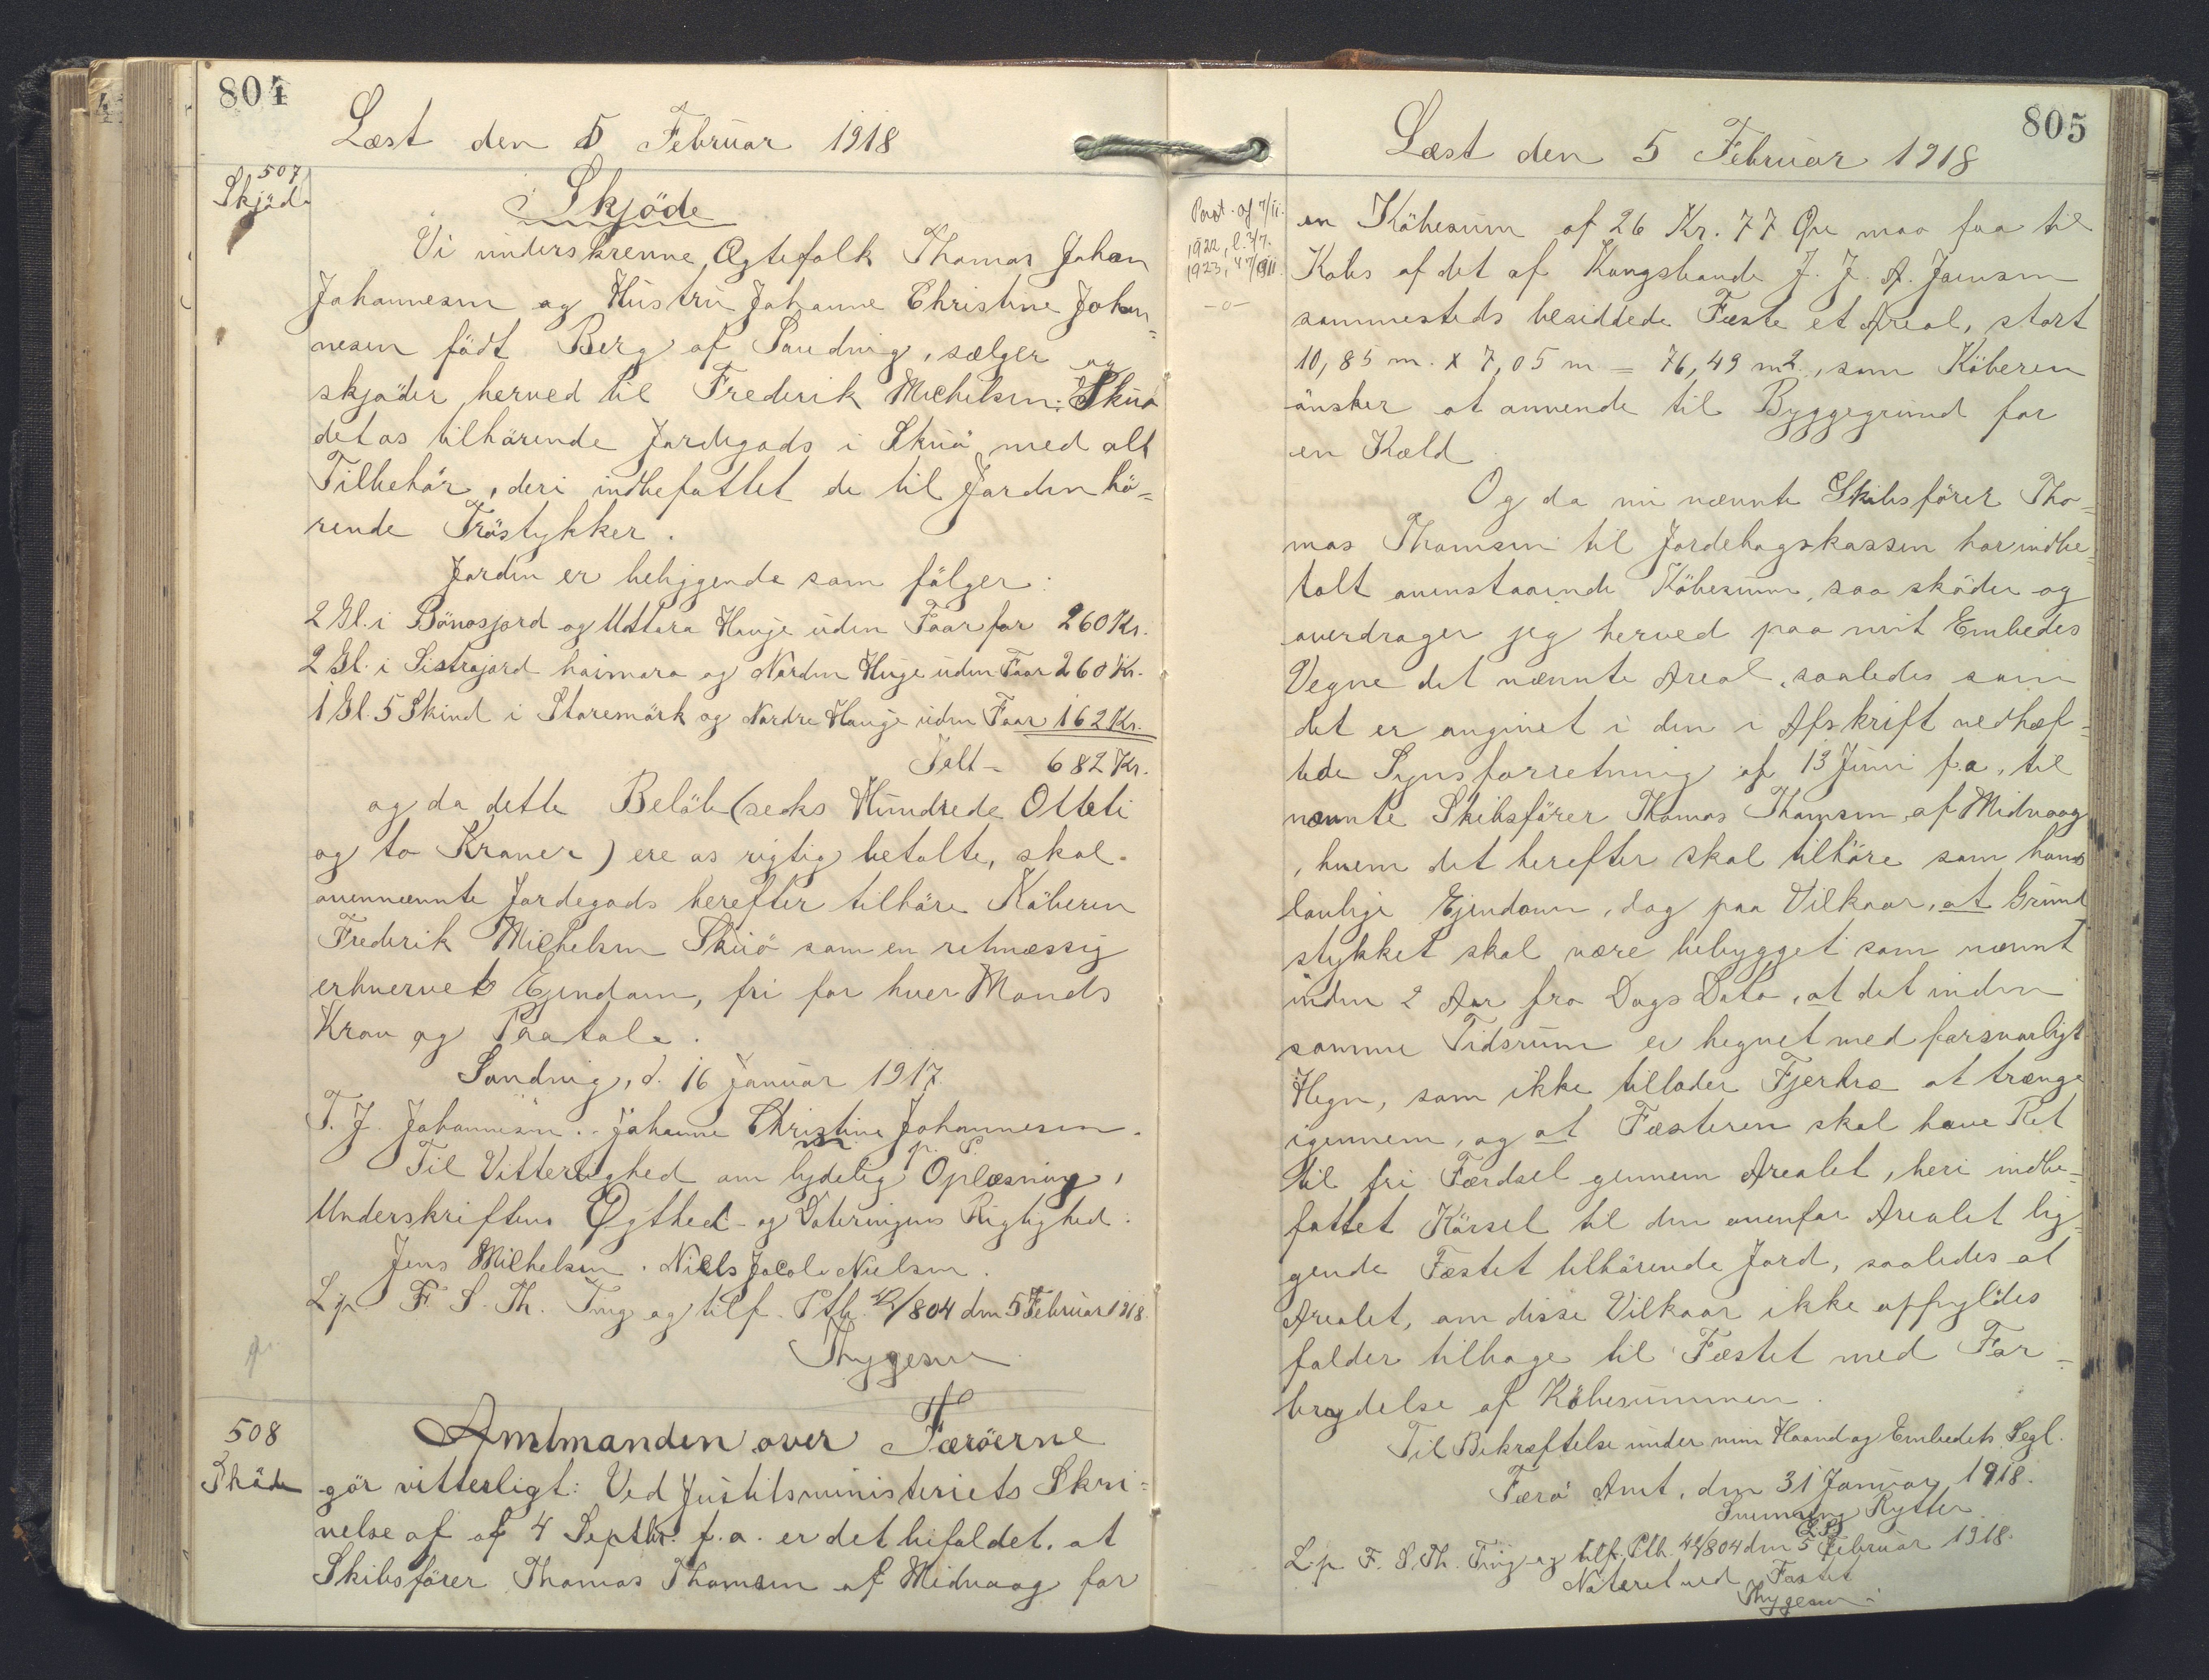 804
Læst den 5 Februar 1918
507
Skjöde
Skjöde
Vi underskrevne Ægtefolk Thomas Johan
Johannesen og Hustru Johanne Christine Johan=
nesen födt Berg af Sandvig, sælger og
skjöder herved til Frederik Michelsen Skuö
det os tilhörende Jordegods i Skuö med alt
Tilbehör, deri indbefattet de til Jorden hö=
rende Tröstykker.
Jorden er beliggende som fölger:
2 Gl. i Bönosjord og Uttara Hauje uden Faar for 260 Kr.
2 Gl. i Sistrajord haimara og Norden Huje uden Faar 260 Kr.
1 Gl. 5 Skind i Storemörk og Nordre Hauje uden Faar 162 Kr.
Ialt = 682 Kr.
og da dette Belöb (seks Hundrede Otteti
og to Kroner) ere os rigtig betalte, skal
ovennævnte Jordegods herefter tilhöre Köberen
Frederik Michelsen Skuö som en retmæssig
erhvervet Ejendom, fri for hver Mands
Krav og Paatale.
Sandvig, d. 16 Januar 1917.
T. J. Johannesen. Johanne Christine Johannesen.
m. p. P.
Til Vitterlighed om lydelig Oplæsning,
Underskriftens Ægthed og Dateringens Rigtighed:
Jens Michelsen. Niels Jacob Nielsen.
L. p. F. S. Th. Ting og tilf. Ptb. /804 den 5 Februar 1918.
Thygesen
508
Sköde
Amtmanden over Færöerne
gör vitterligt: Ved Justitsministeriets Skri=
velse af af 4 Septbr. f.a. er det bifaldet, at
Skibsförer Thomas Thomsen af Midvaag for
805
Læst den 5 Februar 1918
Pant. af 7/11.
1922, l. 3/7.
1923, 47/911.
-o-
en Köbesum af 26 Kr. 77 Öre maa faa til
Köbs af det af Kongsbonde J. J. A. Joensen
sammesteds besiddede Fæste et Areal, stort
10,85 m. x 7,05 m = 76,49 m2., som Köberen
önsker at anvende til Byggegrund for
en Kæld
Og da nu nævnte Skibsförer Tho=
mas Thomsen til Jordebogskassen har indbe=
talt ovenstaaende Köbesum, saa sköder og
overdrager jeg herved paa mit Embedes
Vegne det nævnte Areal, saaledes som
det er angivet i den i Afskrift vedhæf=
tede Synsforretning af 13 Juni f.a., til
nævnte Skibsförer Thomas Thomsen af Midvaag
, hvem det herefter skal tilhöre som hans
lovlige Ejendom, dog paa Vilkaar, at Grund
stykket skal være bebygget som nævnt
inden 2 Aar fra Dags Dato, at det inden
samme Tidsrum er hegnet med forsvarligt
Hegn, som ikke tillader Fjerkræ at trænge
igennem, og at Fæsteren skal have Ret
til fri Færdsel gennem Arealet, heri indbe=
fattet Körsel til den ovenfor Arealet lig=
gende Fæstet tilhörende Jord, saaledes at
Arealet, om disse Vilkaar ikke opfyldes
falder tilbage til Fæstet med For=
brydelse af Köbesummen.
Til Bekræftelse under min Haand og Embedets Segl.
Færö Amt, den 31 Januar 1918.
Svenning Rytter
L. S.
L. p. F. S. Th. Ting og tilf. Ptb. 42/804 den 5 Februar 1918.
Noteret ved Fæstet
Thygesen